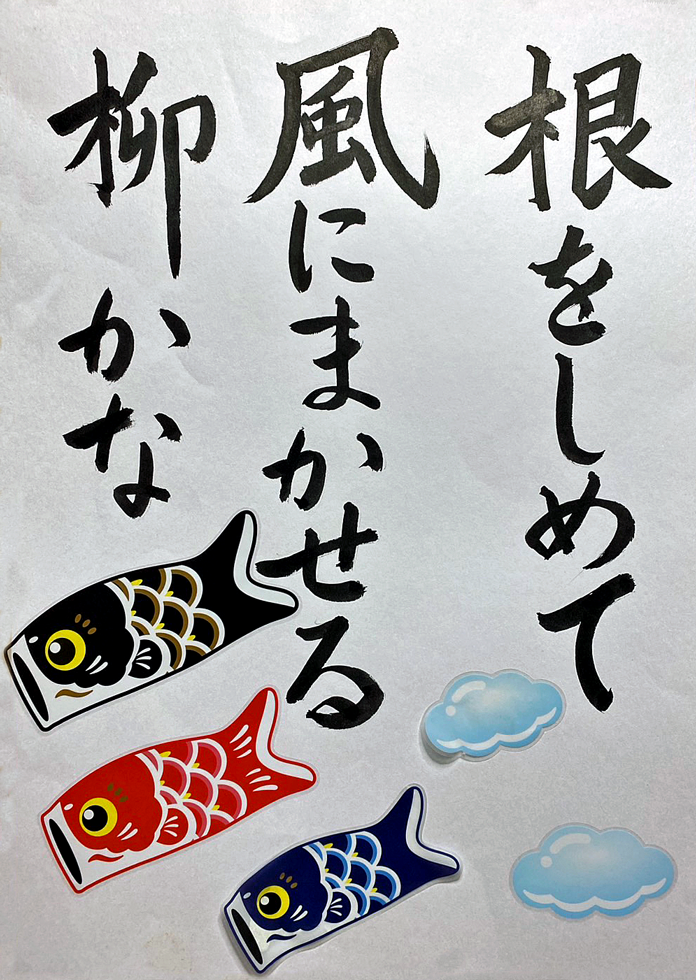 根をしめて
風にまかせる
柳かな